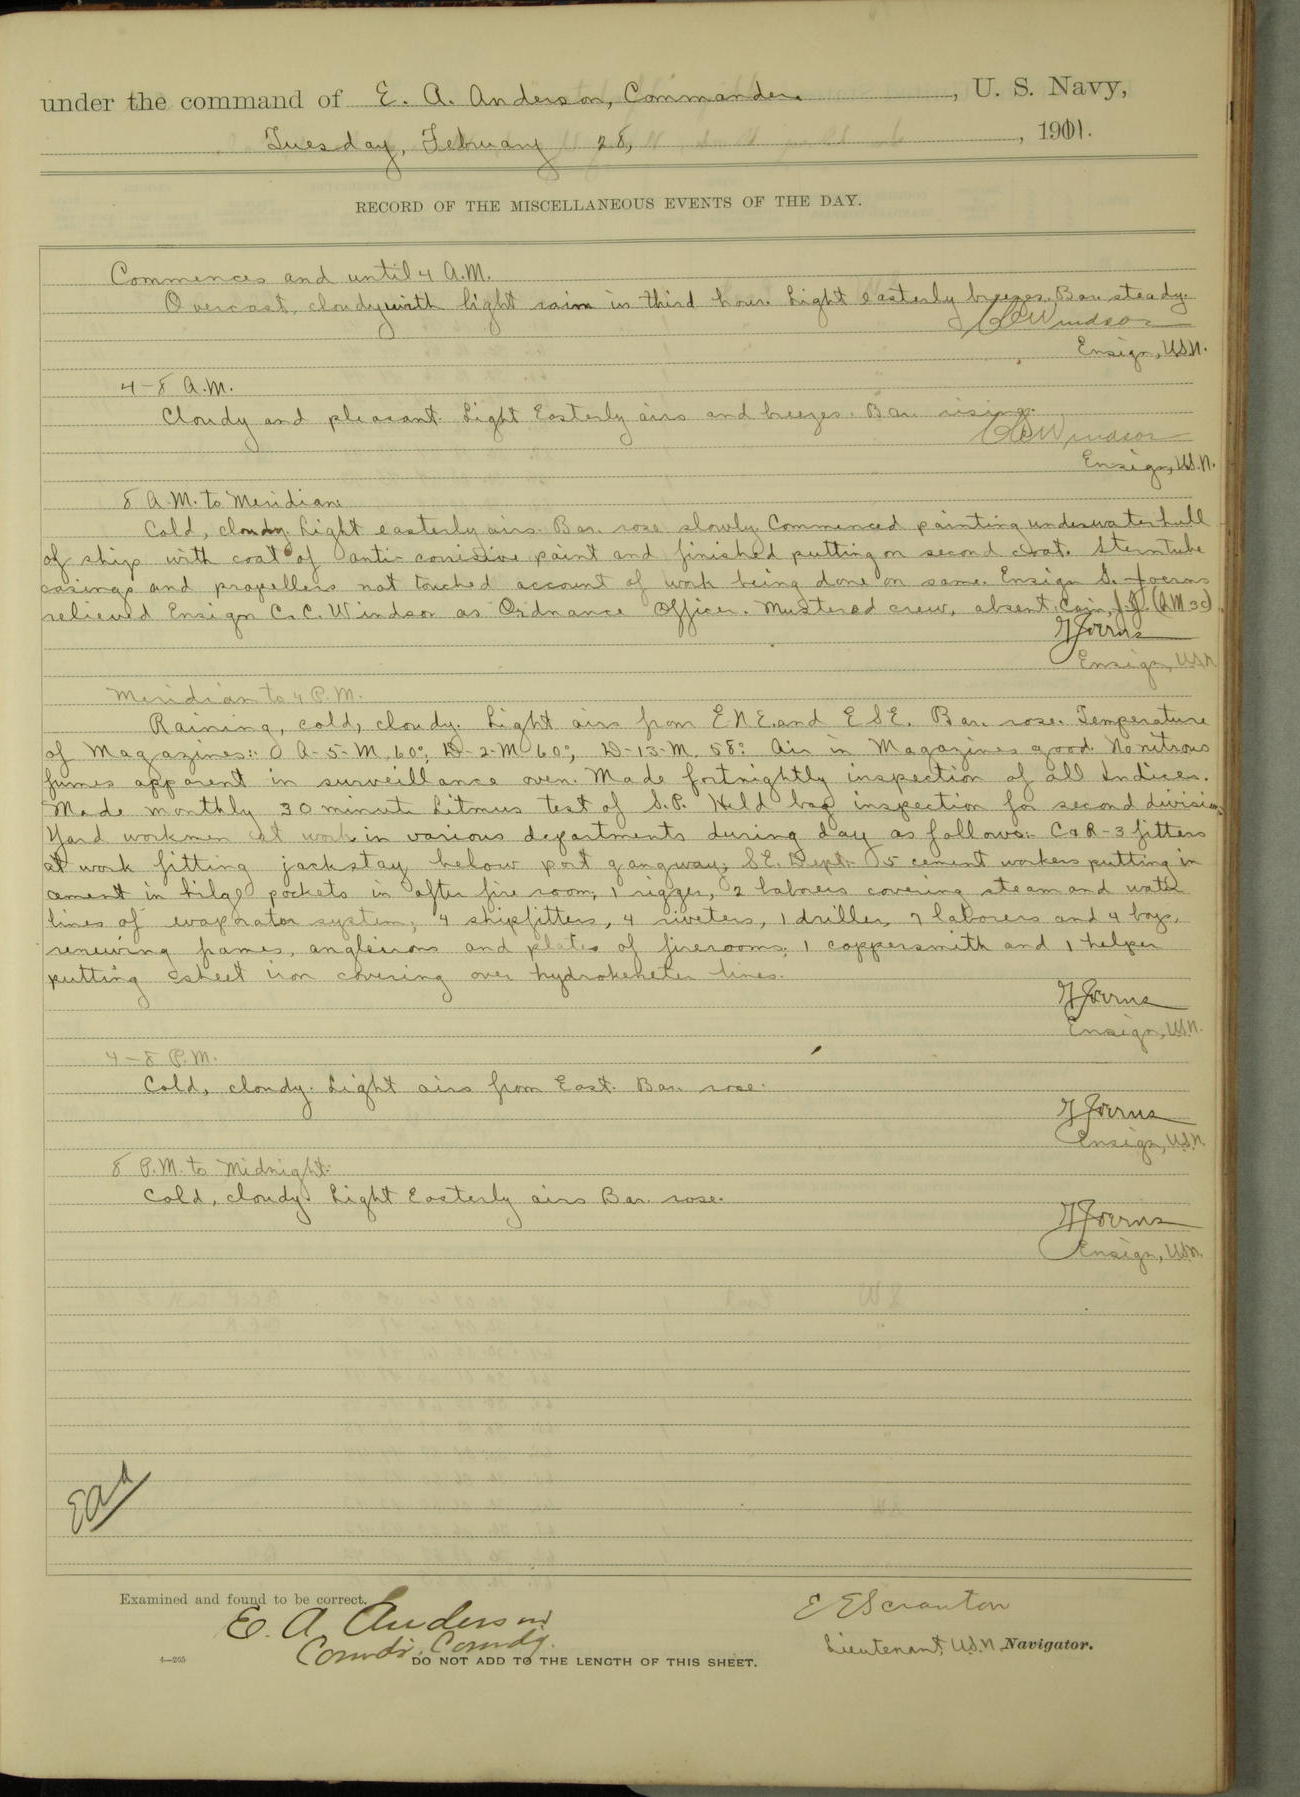 under the command of E. A. Anderson, Commander, U. S. Navy,
Tuesday, February 28, 1911.
RECORD OF THE MISCELLANEOUS EVENTS OF THE DAY.
Commences and until 4 A.M.
Overcast, cloudy with light rain in third hour. Light easterly breezes. Bar. steady.
CCWindsor
Ensign, U.S.N.
4–8 A.M.
Cloudy and pleasant. Light Easterly airs and breezes. Bar. rising.
CCWindsor
Ensign, U.S.N.
8 A.M. to Meridian
Cold, cloudy. Light easterly airs. Bar. rose slowly. Commenced painting underwater hull
of ship with coat of anti-corrisive paint and finished putting on second coat. Sterntube
casings and propellers not touched account of work being done on same. Ensign G. Joerns
relieved Ensign C. C. Windsor as Ordnance Officer. Mustered crew, absent: Cain, J.J. (M 3c).
GJoerns
Ensign, U.S.N.
Meridian to 4 P.M.
Raining, cold, cloudy. Light airs from ENE. and ESE. Bar. rose. Temperature
of Magazines:- A-5-M, 60°; D-2-M 60°; D-13-M. 58°. Air in Magazines good. No nitrous
fumes apparent in surveillance oven. Made fortnightly inspection of all Indices.
Made monthly 30 minute Litmus test of S.P. Held bag inspection for second division.
Yard workmen at work in various departments during day as follows:- C&R-3 fitters
at work fitting jackstay below port gangway; S.E. Dept. 5 cement workers putting in
cement in bilge pockets in after fire room; 1 rigger, 2 laborers covering steam and water
lines of evaporator system; 4 shipfitters, 4 riveters, 1 driller, 7 laborers and 4 boys,
renewing frames, angleirons and plates of firerooms; 1 coppersmith and 1 helper
putting sheet iron covering over hydrokeneter lines.
GJoerns
Ensign, U.S.N.
4–8 P.M.
Cold, cloudy. Light airs from East. Bar. rose.
GJoerns
Ensign, U.S.N.
8 P.M. to Midnight.
Cold, cloudy. Light Easterly airs Bar. rose.
GJoerns
Ensign, U.S.N.
EAA
Examined and found to be correct.
E. A. Anderson
Comdr. Comdg.
E E Scranton
Lieutenant, U.S.N., Navigator.
4—265
DO NOT ADD TO THE LENGTH OF THIS SHEET.